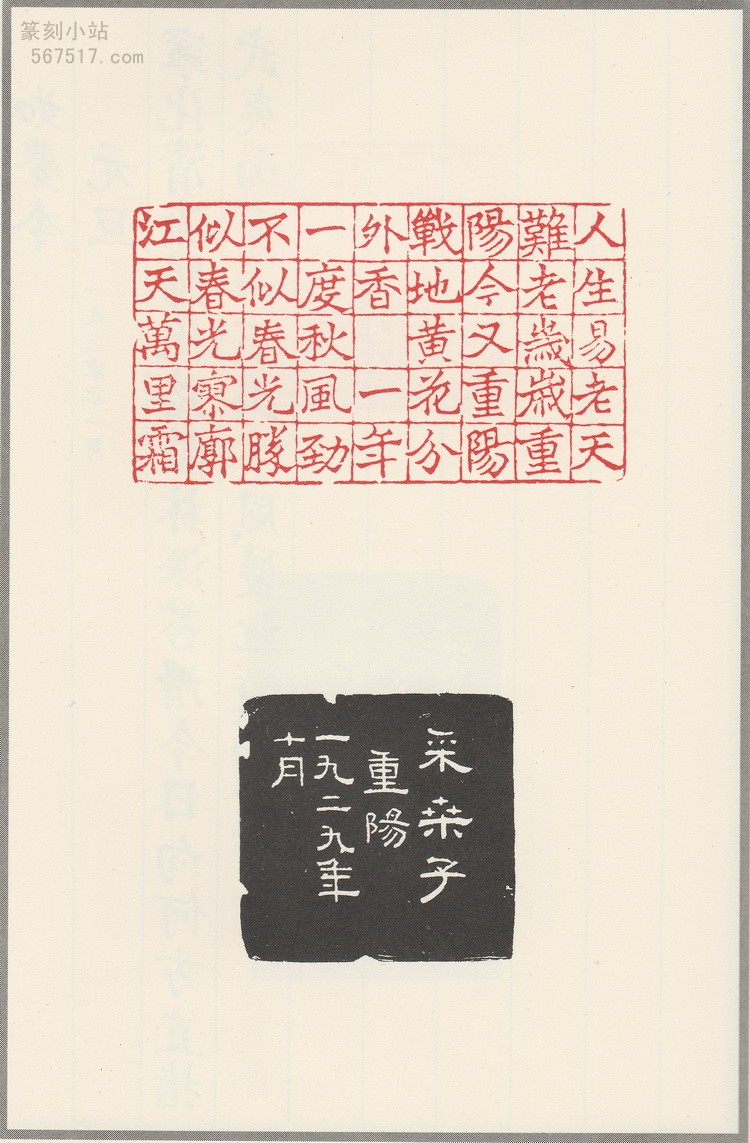 篆刻小站
567517.com
人生易老天
難老歲歲重
陽今又重陽
戰地黃花分
外香 一年
一度秋風勁
不似春光勝
似春光寥廓
江天萬里霜
采桒子
重陽
一九二九年
十月